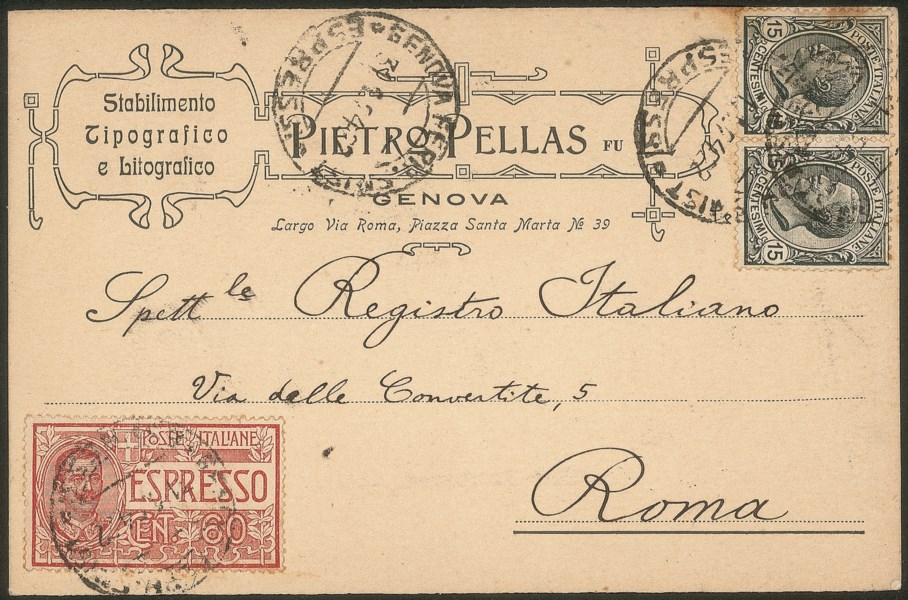 Stabilimento
Tipografico
e Litografico
PIETRO PELLAS FU
GENOVA
Largo Via Roma, Piazza Santa Marta № 39
GENOVA FERR
ESPRESSI
POSTE ITALIANE
CENTESIMI 15
POSTE ITALIANE
CENTESIMI 15
Spett.le Registro Italiano
Via delle Convertite, 5
Roma
POSTE ITALIANE
ESPRESSO
CEN. 60